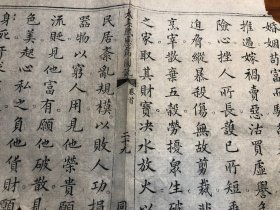 婚姻苟富
推過嫁禍賣惡沽買虛譽
險心挫人所長護己所短
迫脅縱暴殺傷無故剪裁非
烹宰散棄五穀勞擾衆生破
之家取其財寶决水放火以
太上感應篇
卷首
二十九
民居紊亂規模以敗人功損
器物以窮人用見他榮貴願
流貶見他富有願他破散見
色美起心私之負他貨財願
身死